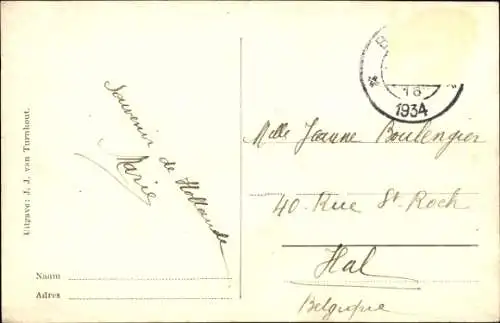 Uitgave: J. J. van Turnhout.
Souvenir de Hollande
Marie
Naam
Adres
16
1934
Mlle Jeanne Boulengier
40 Rue St Roch
Hal
Belgique